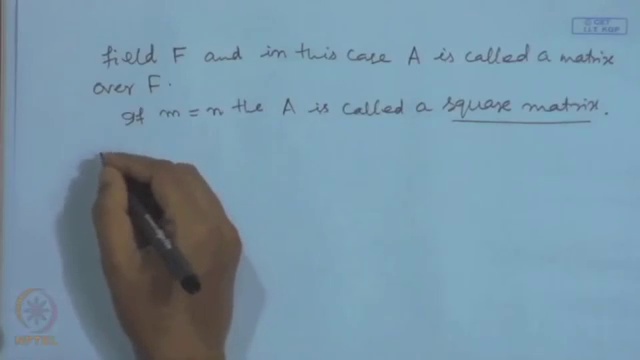 © CET
I.I.T. KGP
field F and in this case A is called a matrix
over F.
If m = n the A is called a square matrix.
NPTEL